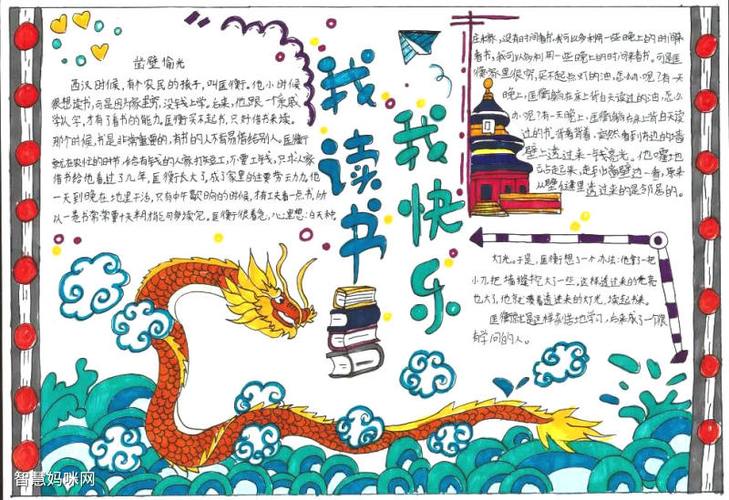 凿壁偷光
西汉时候,有个农民的孩子,叫匡衡。他小时候
很想读书,可是因为家里穷,没钱上学。后来,他跟一个亲戚
学认字,才有了看书的能力。匡衡买不起书,只好借书来读。
那个时候,书是非常贵重的,有书的人不肯轻易借给别人。匡衡
就在农忙的时节,给有钱的人家打短工,不要工钱,只求人家
借书给他看过了几年,匡衡长大了,成了家里的主要劳动力。他
一天到晚在地里干活,只有中午歇晌的时候,才有工夫看一点书,所
以一卷书常常要十天半月才能够读完。匡衡很着急,心里想:白天种
我读书
我快乐
庄稼,没有时间看书,我可以多利用一些晚上的时间来
看书,我可以多利用一些晚上的时间来看书。可是匡
衡家里很穷,买不起点灯的油,怎么办呢?有一天
晚上,匡衡躺在床上背白天读过的
办呢?有一天晚上,匡衡躺在床上背白天读
过的书。背着背着,突然看到东边的墙
壁上透过来一线亮光。他嚯地
站起来,走到墙壁边一看,原来
从壁缝里透过来的是邻居的
灯光。于是,匡衡想了一个办法:他拿了一把
小刀,把墙缝挖大了一些。这样,透过来的光亮
也大了,他就凑着透进来的灯光,读起书来。
匡衡就是这样刻苦地学习,后来成了一个很
有学问的人。
智慧妈咪网